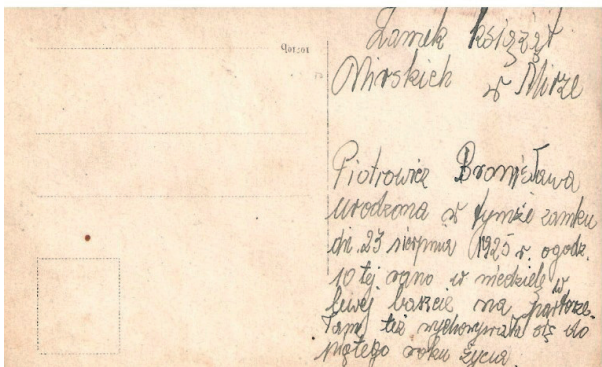 Zamek książąt
Mirskich w Mirze
Piotrowicz Bronisława
urodzona w tymże zamku
dn. 23 sierpnia 1925 r. o godz.
10 tej rano w niedzielę w
lewej baszcie na parterze.
Tam też wychowywała się do
piątego roku życia.